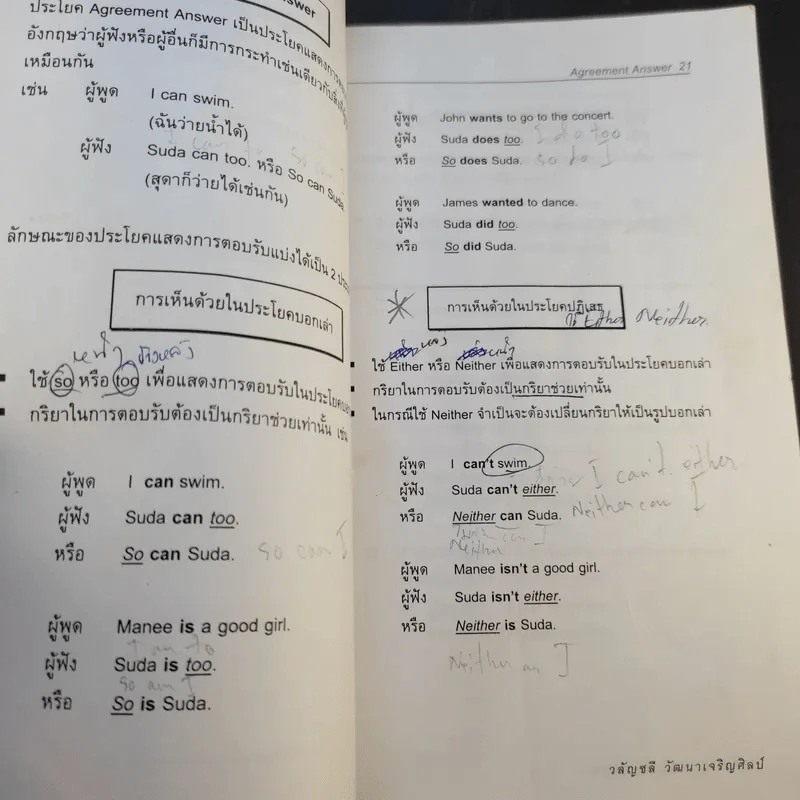 ประโยค Agreement Answer เป็นประโยคแสดงการตอบ
อังกฤษว่าผู้ฟังหรือผู้อื่นก็มีการกระทำเช่นเดียวกับ
เหมือนกัน
เช่น ผู้พูด I can swim.
(ฉันว่ายน้ำได้)
ผู้ฟัง Suda can too. หรือ So can Suda.
(สุดาก็ว่ายได้เช่นกัน)
ลักษณะของประโยคแสดงการตอบรับแบ่งได้เป็น 2
การเห็นด้วยในประโยคบอกเล่า
หน้า ข้างหลัง
ใช้ so หรือ too เพื่อแสดงการตอบรับในประโยค
กริยาในการตอบรับต้องเป็นกริยาช่วยเท่านั้น เช่น
ผู้พูด I can swim.
ผู้ฟัง Suda can too.
หรือ So can Suda. So can I
ผู้พูด Manee is a good girl.
ผู้ฟัง Suda is too.
So am I
หรือ So is Suda.
Agreement Answer 21
ผู้พูด John wants to go to the concert.
ผู้ฟัง Suda does too. I do too
หรือ So does Suda. So do I
ผู้พูด James wanted to dance.
ผู้ฟัง Suda did too.
หรือ So did Suda.
การเห็นด้วยในประโยคปฏิเสธ
ใช้ Either Neither
หลัง หน้า
ใช้ Either หรือ Neither เพื่อแสดงการตอบรับในประโยคบอกเล่า
กริยาในการตอบรับต้องเป็นกริยาช่วยเท่านั้น
ในกรณีใช้ Neither จำเป็นจะต้องเปลี่ยนกริยาให้เป็นรูปบอกเล่า
ผู้พูด I can't swim.
ผู้ฟัง Suda can't either. I can't either
หรือ Neither can Suda. Neither can I
can I
Neither
ผู้พูด Manee isn't a good girl.
ผู้ฟัง Suda isn't either.
หรือ Neither is Suda.
Neither am I
วลัญชลี วัฒนาเจริญศิลป์